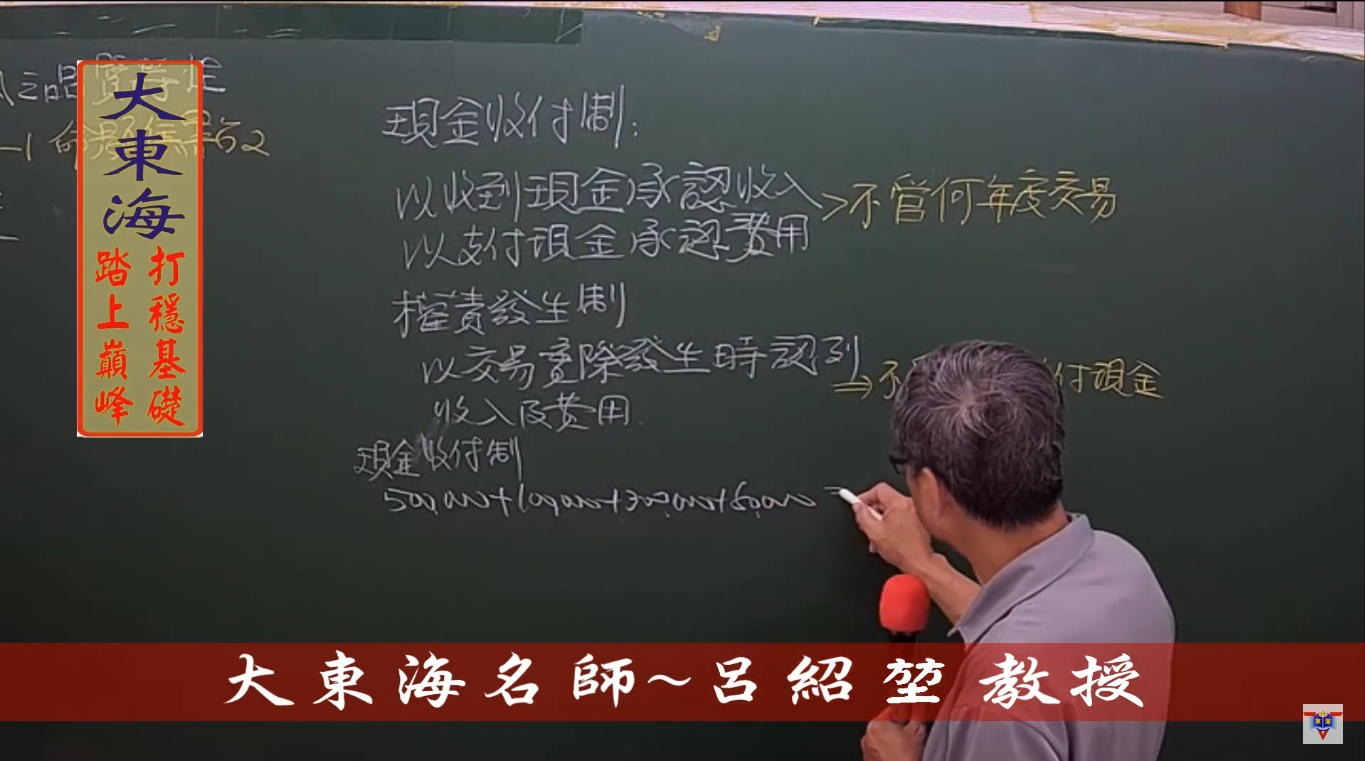 現金收付制:
以收到現金承認收入>不管何年度交易
以支付現金承認費用
權責發生制
以交易實際發生時認列⇒不 付現金
收入及費用
現金收付制
500,000+100,000+300,000+50,000
命題焦點2
大東海
打穩基礎
踏上巔峰
大東海名師~呂紹堃教授